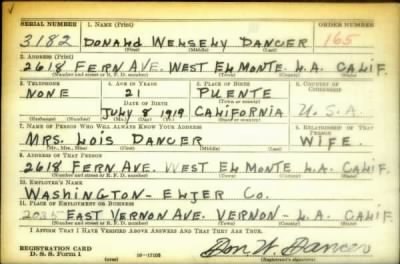 SERIAL NUMBER 1. NAME (Print) ORDER NUMBER
3182 DONALD WELSELY DANCER 165
(First) (Middle) (Last)
2. ADDRESS (Print)
2618 FERN AVE. WEST EL MONTE. L.A. CALIF.
(Number and street or R. F. D. number) (Town) (County) (State)
3. TELEPHONE 4. AGE IN YEARS 5. PLACE OF BIRTH 6. COUNTRY OF CITIZENSHIP
NONE 21 PUENTE
DATE OF BIRTH (Town or county)
JULY 8 1919 CALIFORNIA U.S.A.
(Exchange) (Number) (Mo.) (Day) (Yr.) (State or country)
7. NAME OF PERSON WHO WILL ALWAYS KNOW YOUR ADDRESS 8. RELATIONSHIP OF THAT PERSON
MRS. LOIS DANCER WIFE.
(Mr., Mrs., Miss) (First) (Middle) (Last)
9. ADDRESS OF THAT PERSON
2618 FERN AVE. WEST EL MONTE L.A. CALIF.
(Number and street or R. F. D. number) (Town) (County) (State)
10. EMPLOYER'S NAME
WASHINGTON-ELJER CO.
11. PLACE OF EMPLOYMENT OR BUSINESS
EAST VERNON AVE. VERNON - L.A. CALIF
(Number and street or R. F. D. number) (Town) (County) (State)
I AFFIRM THAT I HAVE VERIFIED ABOVE ANSWERS AND THAT THEY ARE TRUE.
REGISTRATION CARD
D. S. S. Form 1 (over) 16-17105 Don W. Dancer
(Registrant's signature)